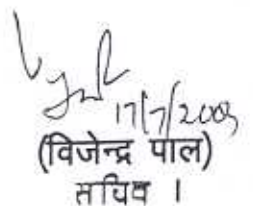 17/7/2009
(विजेन्द्र पाल)
सचिव ।